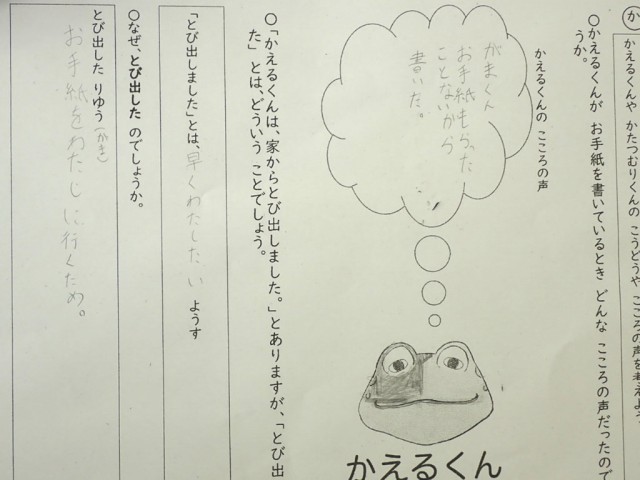 か
かえるくんや かたつむりくんの こうどうや こころの声を考えよう
〇かえるくんが お手紙を書いているとき どんな こころの声だったので
うか。
かえるくんの こころの声
がまくん
お手紙もらった
ことないから
書いた。
かえるくん
〇「かえるくんは、家からとび出しました。」とありますが、「とび出
た」とは、どういう ことでしょう。
「とび出しました」とは、早くわたしたい ようす
〇なぜ、とび出した のでしょうか。
とび出した りゆう(かき)
お手紙をわたしに行くため。